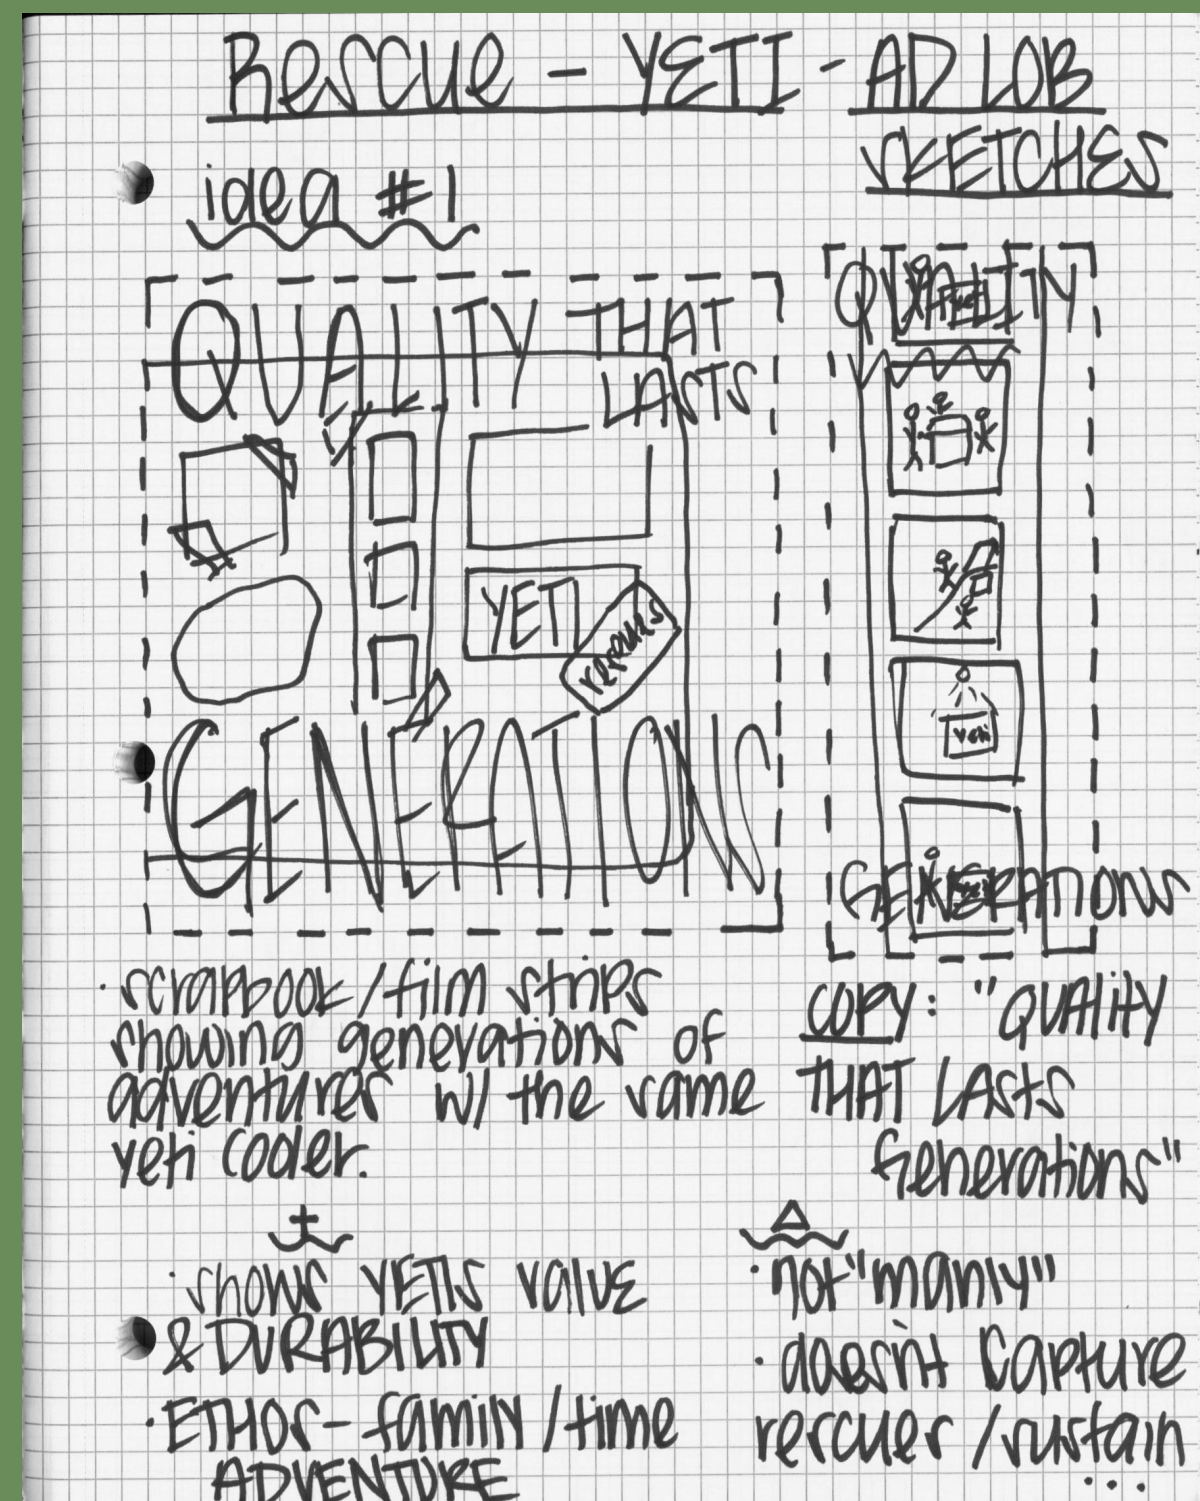 Rescue - YETI - AD LOB
SKETCHES
idea #1
QUALITY THAT
LASTS
YETI
rescues
GENERATIONS
QUALITY
yeti
GENERATIONS
· scrapbook/film strips
showing generations of
adventures w/ the same
yeti cooler.
COPY: "QUALITY
THAT LASTS
Generations"
+
· shows YETIS value
& DURABILITY
· ETHOS - family/time
ADVENTURE
△
· not "manly"
· doesn't capture
rescues/sustain
...